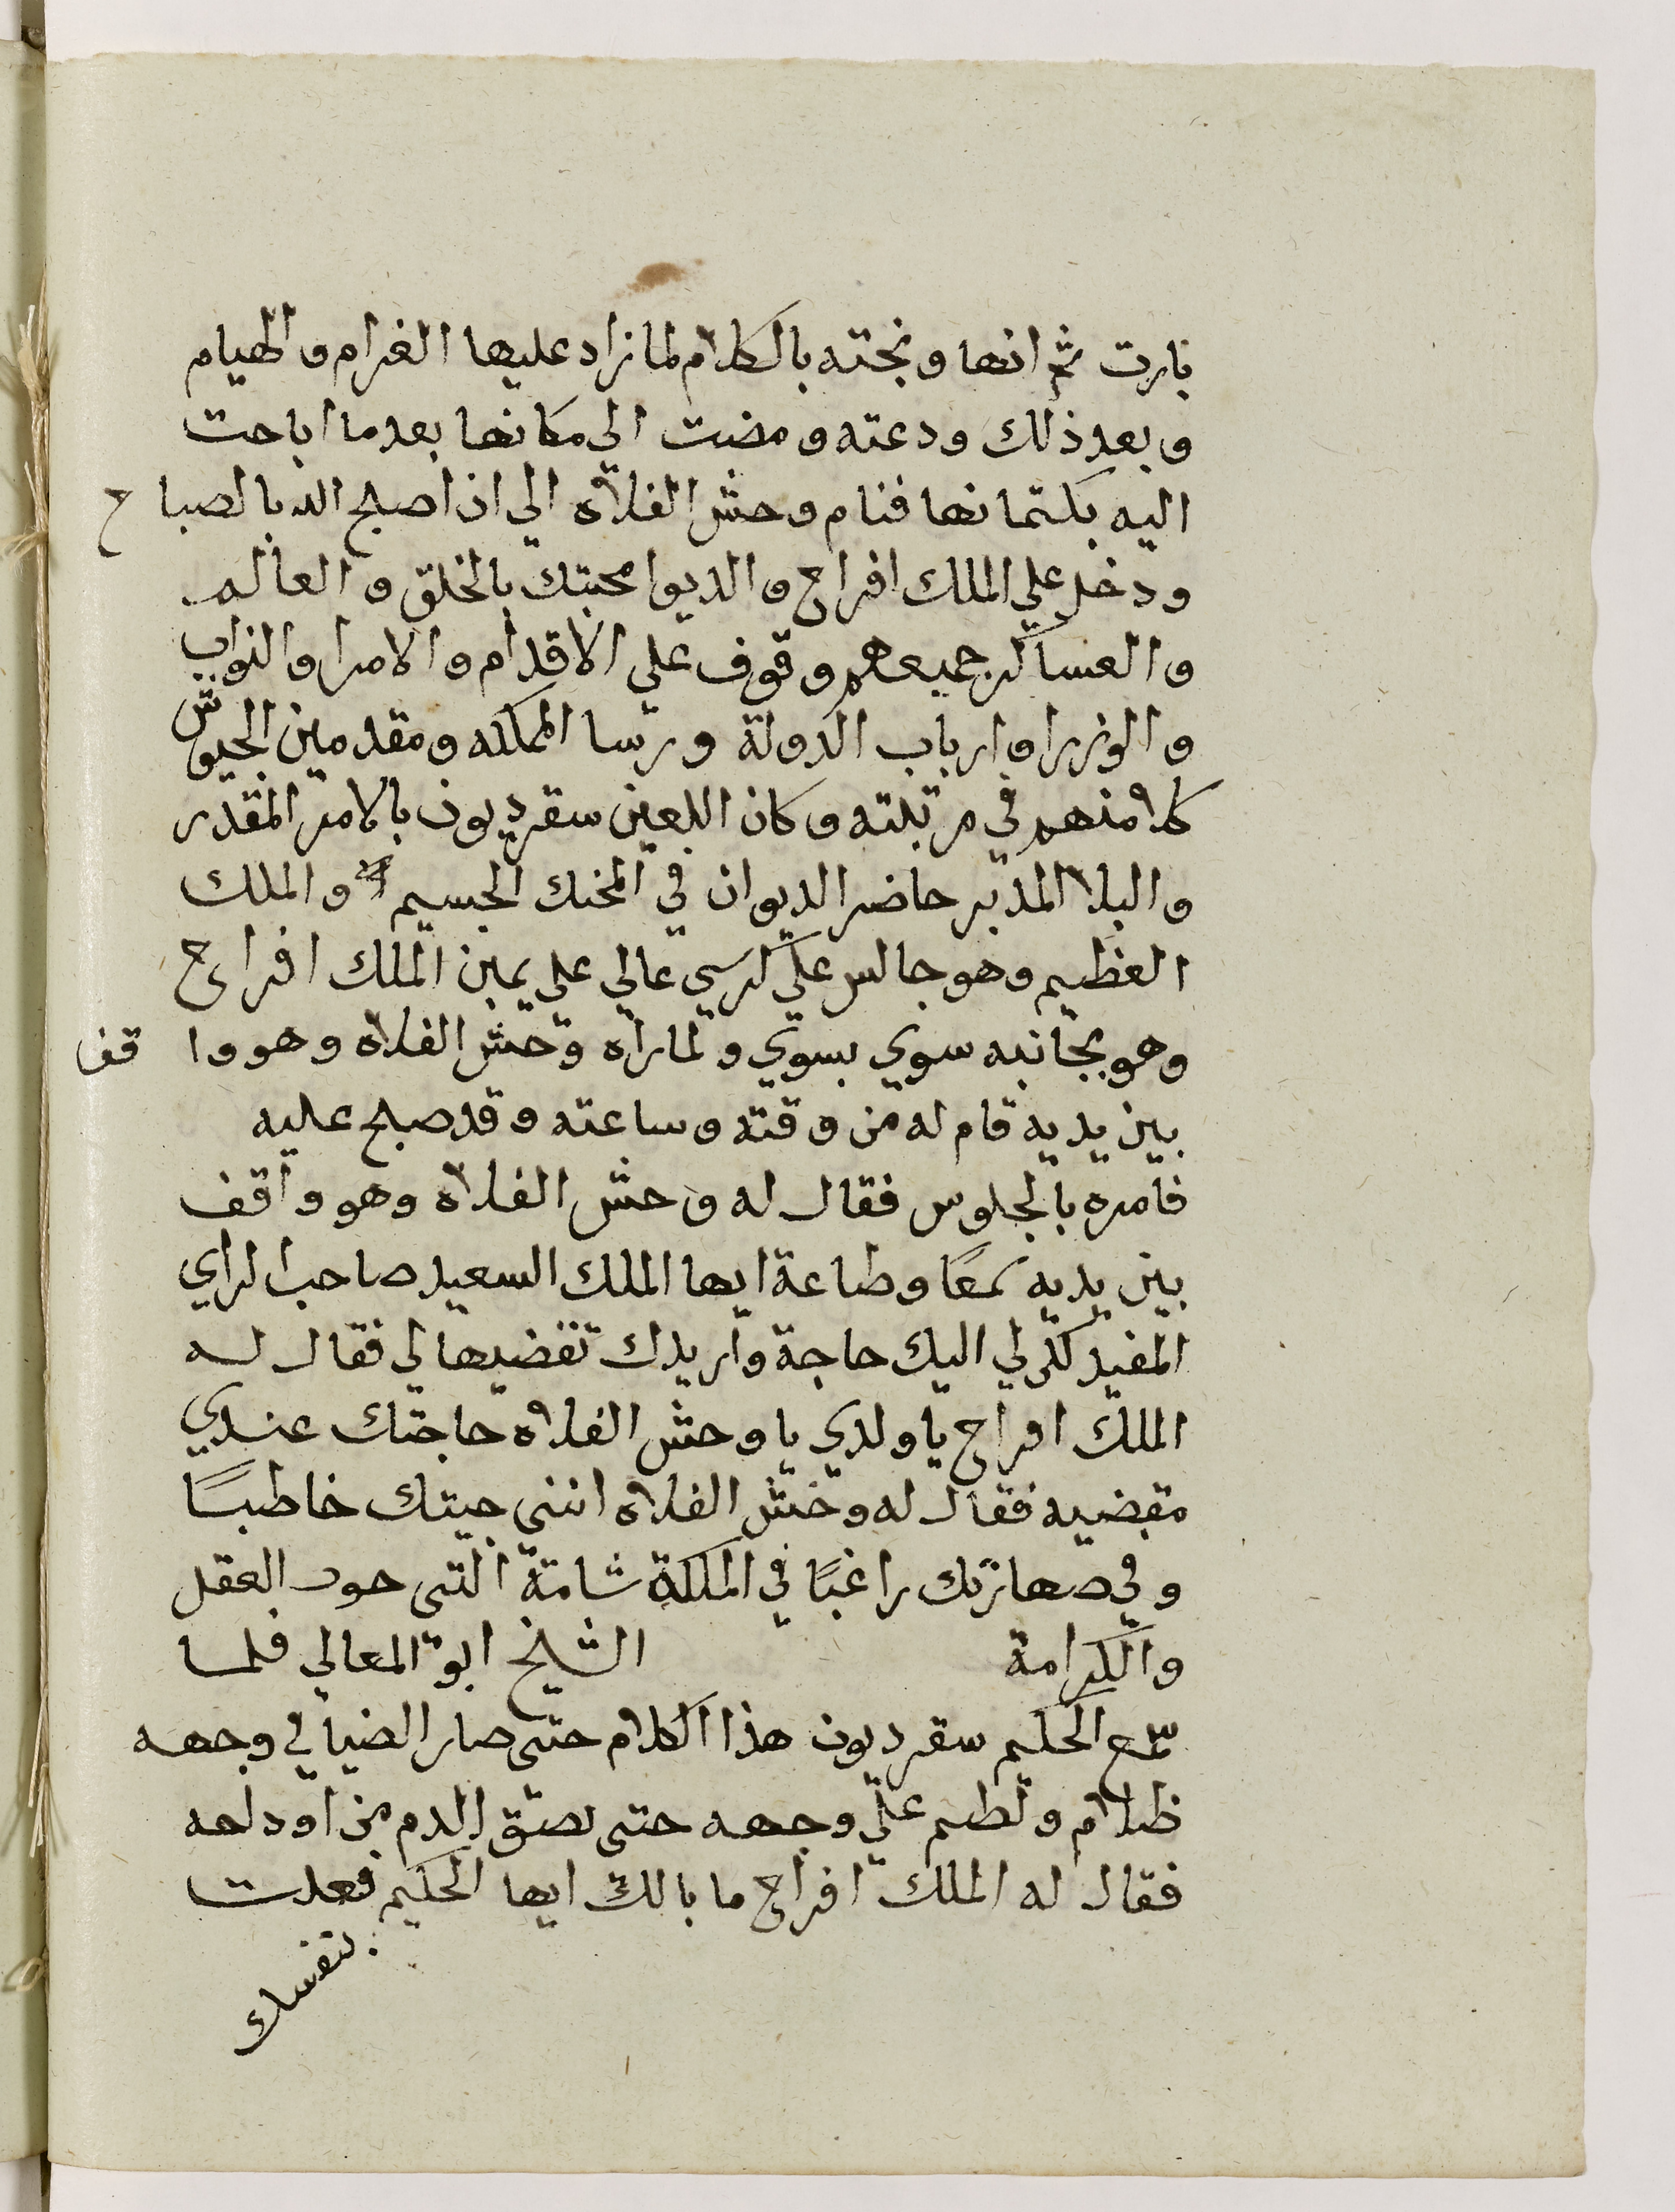 بارت ثم انها ونجته بالكلام لما زاد عليها الغرام والهيام
وبعد ذلك ودعته ومضت الى مكانها بعدما اباحت
اليه بكتمانها فنام وحش الفلاه الي ان اصبح الله بالصباح
ودخل علي الملك افراح والديوا محبتك بالخلق والعالم
والعساكر جميعهم وقوف علي الاقدام والامرا والنواب
والوزرا وارباب الدولة ورسا المملكه ومقدمين الجيوش
كلا منهم في مرتبته وكان اللعين سقرديون بالامر المقدر
والبلا المدبر حاضر الديوان في المحنك الجسيم والملك
العظيم وهو جالس علي كرسي عالي علي يمين الملك افراح
وهو بجانبه سوي بسوي ولما راه وحش الفلاه وهو واقف
بين يديه قام له من وقته وساعته وقد صبح عليه
فامره بالجلوس فقال له وحش الفلاه وهو واقف
بين يديه سمعًا وطاعة ايها الملك السعيد صاحب الراي
المفيد لكن لي اليك حاجة واريدك تقضيها لي فقال له
الملك افراح يا ولدي يا وحش الفلاه حاجتك عندي
مقضيه فقال له وحش الفلاه انني جيتك خاطبًا
وفي صهارتك راغبًا في الملكة شامة التي حوت العقل
والكرامة الشيخ ابو المعالي فلما
سمع الحكيم سقرديون هذا الكلام حتى صار الضيا في وجهه
ظلام ولطم علي وجهه حتى بصق الدم من اوداجه
فقال له الملك افراح ما بالك ايها الحكيم فعلت
بنفسك